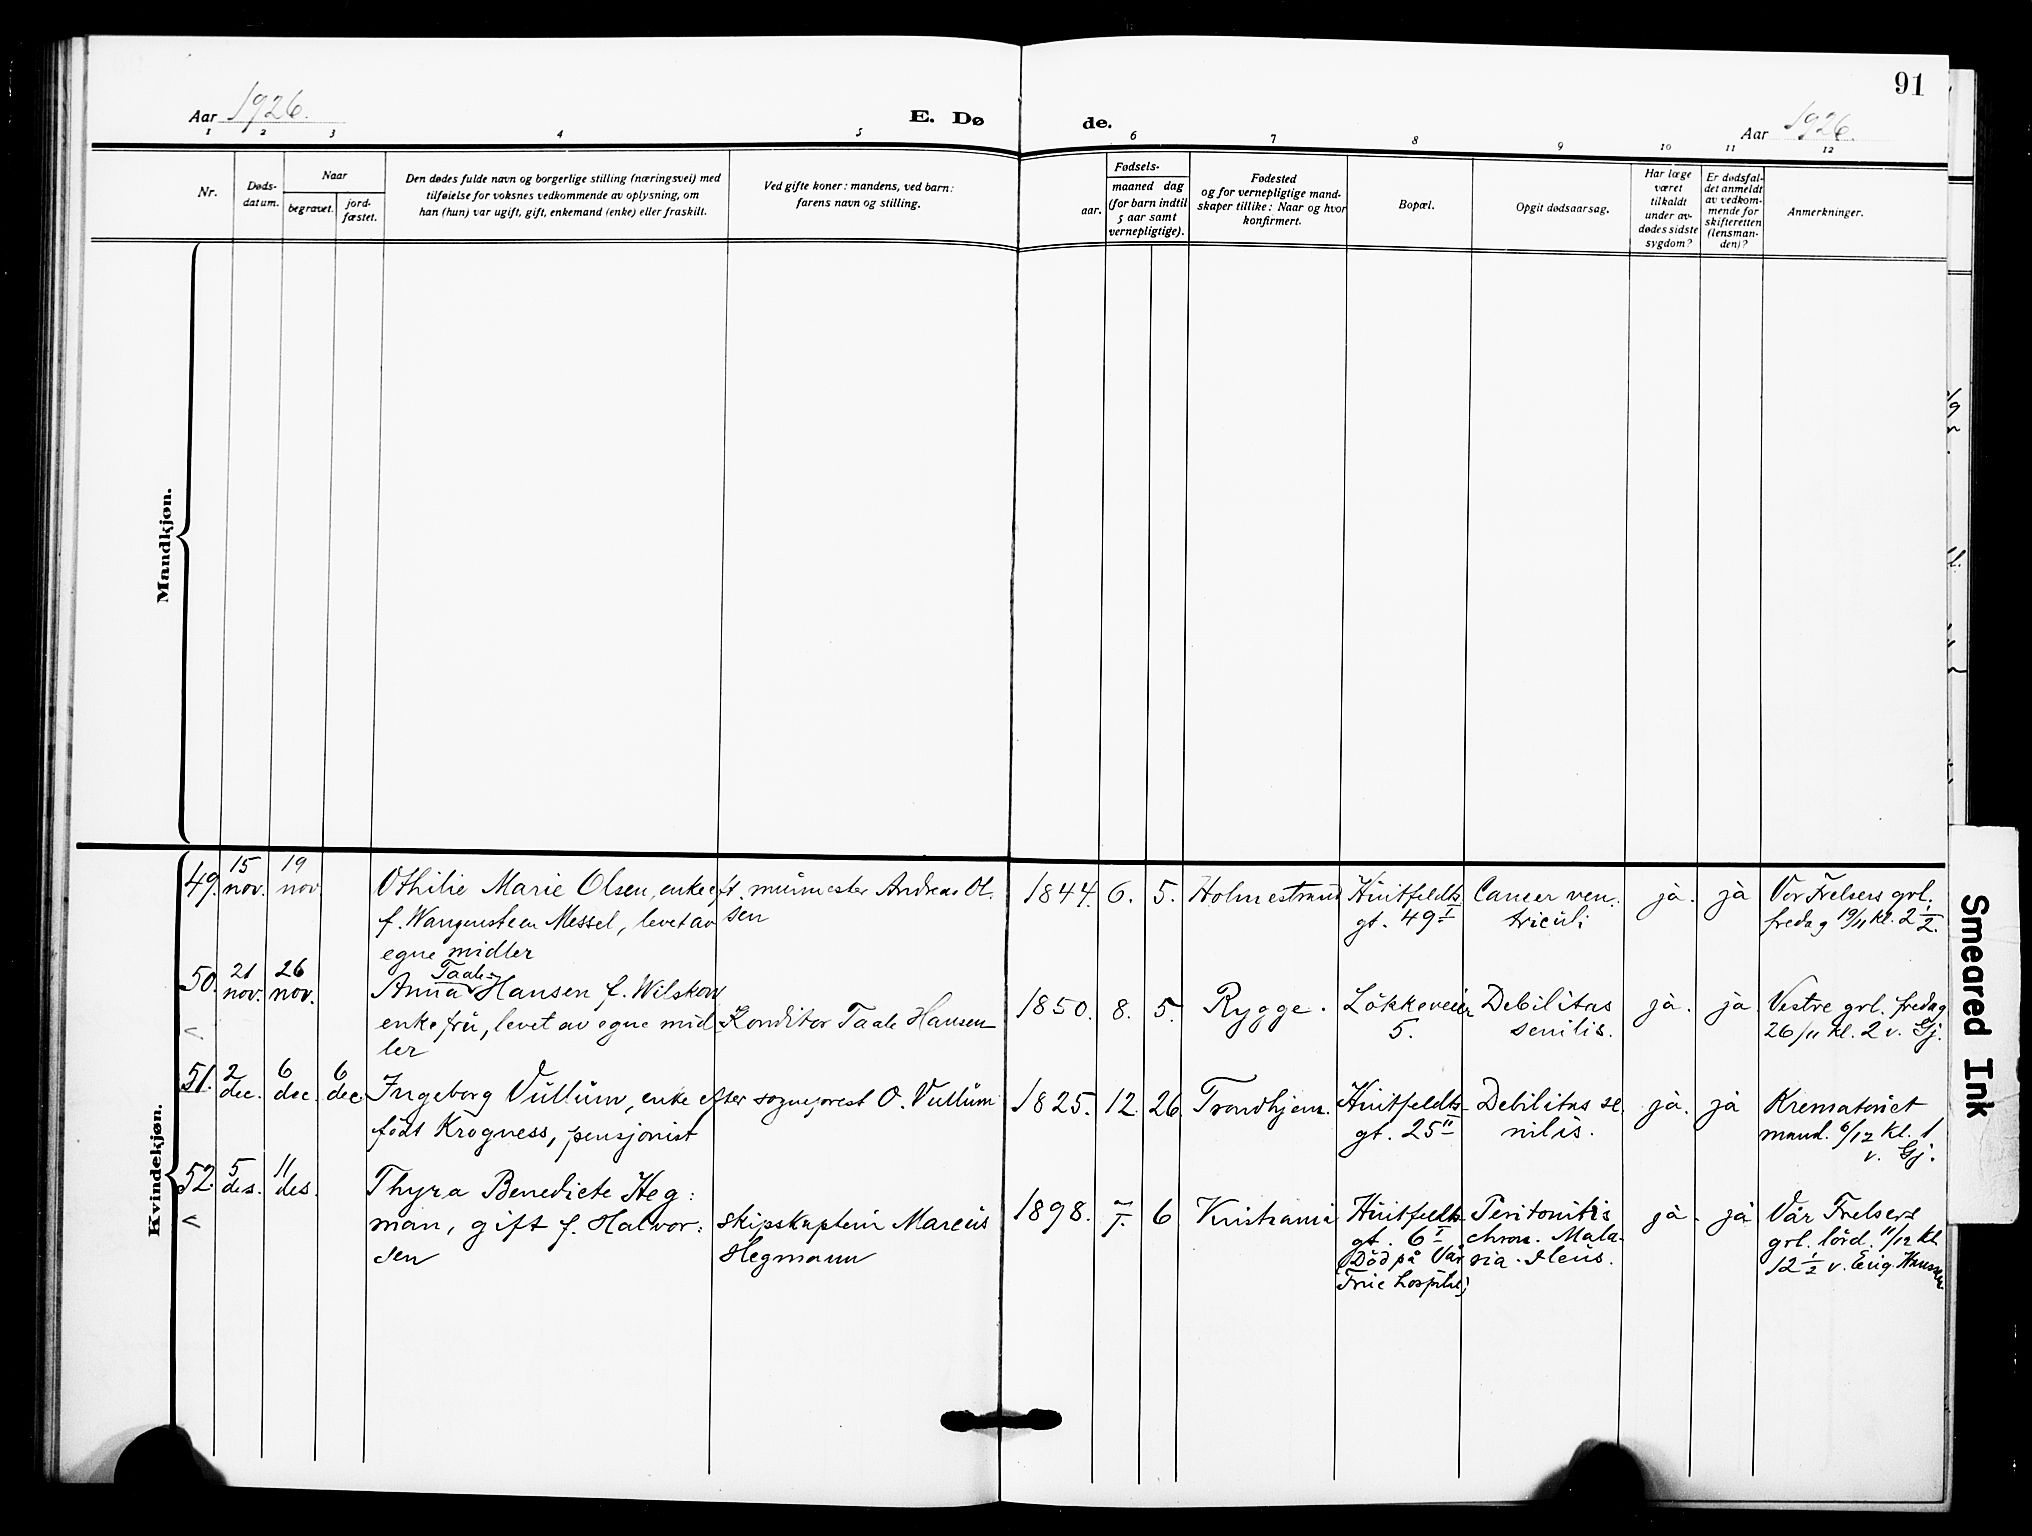 91
Aar 1926.
E. Dø de.
Aar 1926.
1 2 3 4 5 6 7 8 9 10 11 12
Nr.
Døds-
datum.
Naar
begravet.
jord-
fæstet.
Den dødes fulde navn og borgerlige stilling (næringsvei) med
tilføielse for voksnes vedkommende av oplysning, om
han (hun) var ugift, gift, enkemand (enke) eller fraskilt.
Ved gifte koner: mandens, ved barn:
farens navn og stilling.
Fødsels-
aar.
maaned dag
(for barn indtil
5 aar samt
vernepligtige).
Fødested
og for vernepligtige mand-
skaper tillike: Naar og hvor
konfirmert.
Bopæl.
Opgit dødsaarsag.
Har læge
været
tilkaldt
under av-
dødes sidste
sygdom?
Er dødsfal-
det anmeldt
av vedkom-
mende for
skifteretten
(lensman-
den)?
Anmerkninger.
Mandkjøn.
Kvindekjøn.
49. 15 nov. 19 nov.
Othilie Marie Olsen, enke eft. murmester Andreas Ol-
f. Wangensteen Messel, levet av sen
egne midler
1844. 6. 5. Holmestrand
Huitfeldts
gt. 49 I
Cancer ven-
triculi
ja. ja
Vor Frelsers grl.
fredag 19/11 kl. 2 1/2.
50. 21 nov. 26 nov.
Taale-
Anna Hansen f. Wilskow
enkefru, levet av egne mid- Konditor Taale Hansen
ler
1850. 8. 5. Rygge.
Lökkeveien
5.
Debilitas
senilis.
ja. ja
Vestre grl. fredag
26/11 kl. 2 v. Gj.
51. 2 dec. 6 dec. 6 dec.
Ingeborg Vullum, enke efter sogneprest O. Vullum
födt Krogness, pensjonist
1825. 12. 26. Trondhjem.
Huitfeldts
gt. 25 II
Debilitas se-
nilis.
ja. ja
Krematoriet
mand. 6/12 kl. 1
v. Gj.
52. 5 des. 11 des.
Thyra Benedicte Heg-
man, gift f. Halvor- skipskaptein Marcus
sen Hegmann
1898. 7. 6 Kristiania
Huitfeldts
gt. 6 I
(Död på Vår
Frue hospital)
Peritonitis
chron. Mala-
ria. Ileus.
ja. ja
Vår Frelsers
grl. lörd. 11/12 kl
12 1/2 v. Eug. Hansen
Smeared Ink